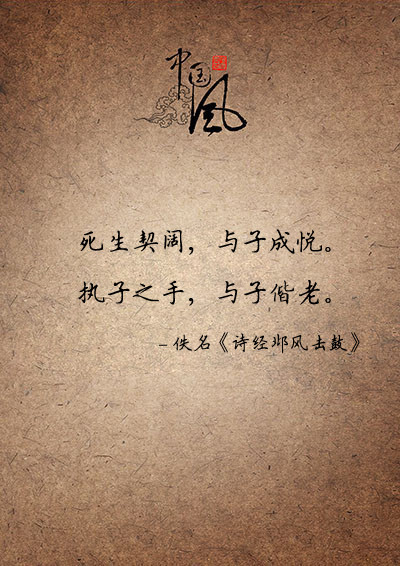 中国风
死生契阔，与子成悦。
执子之手，与子偕老。
–佚名《诗经邶风击鼓》